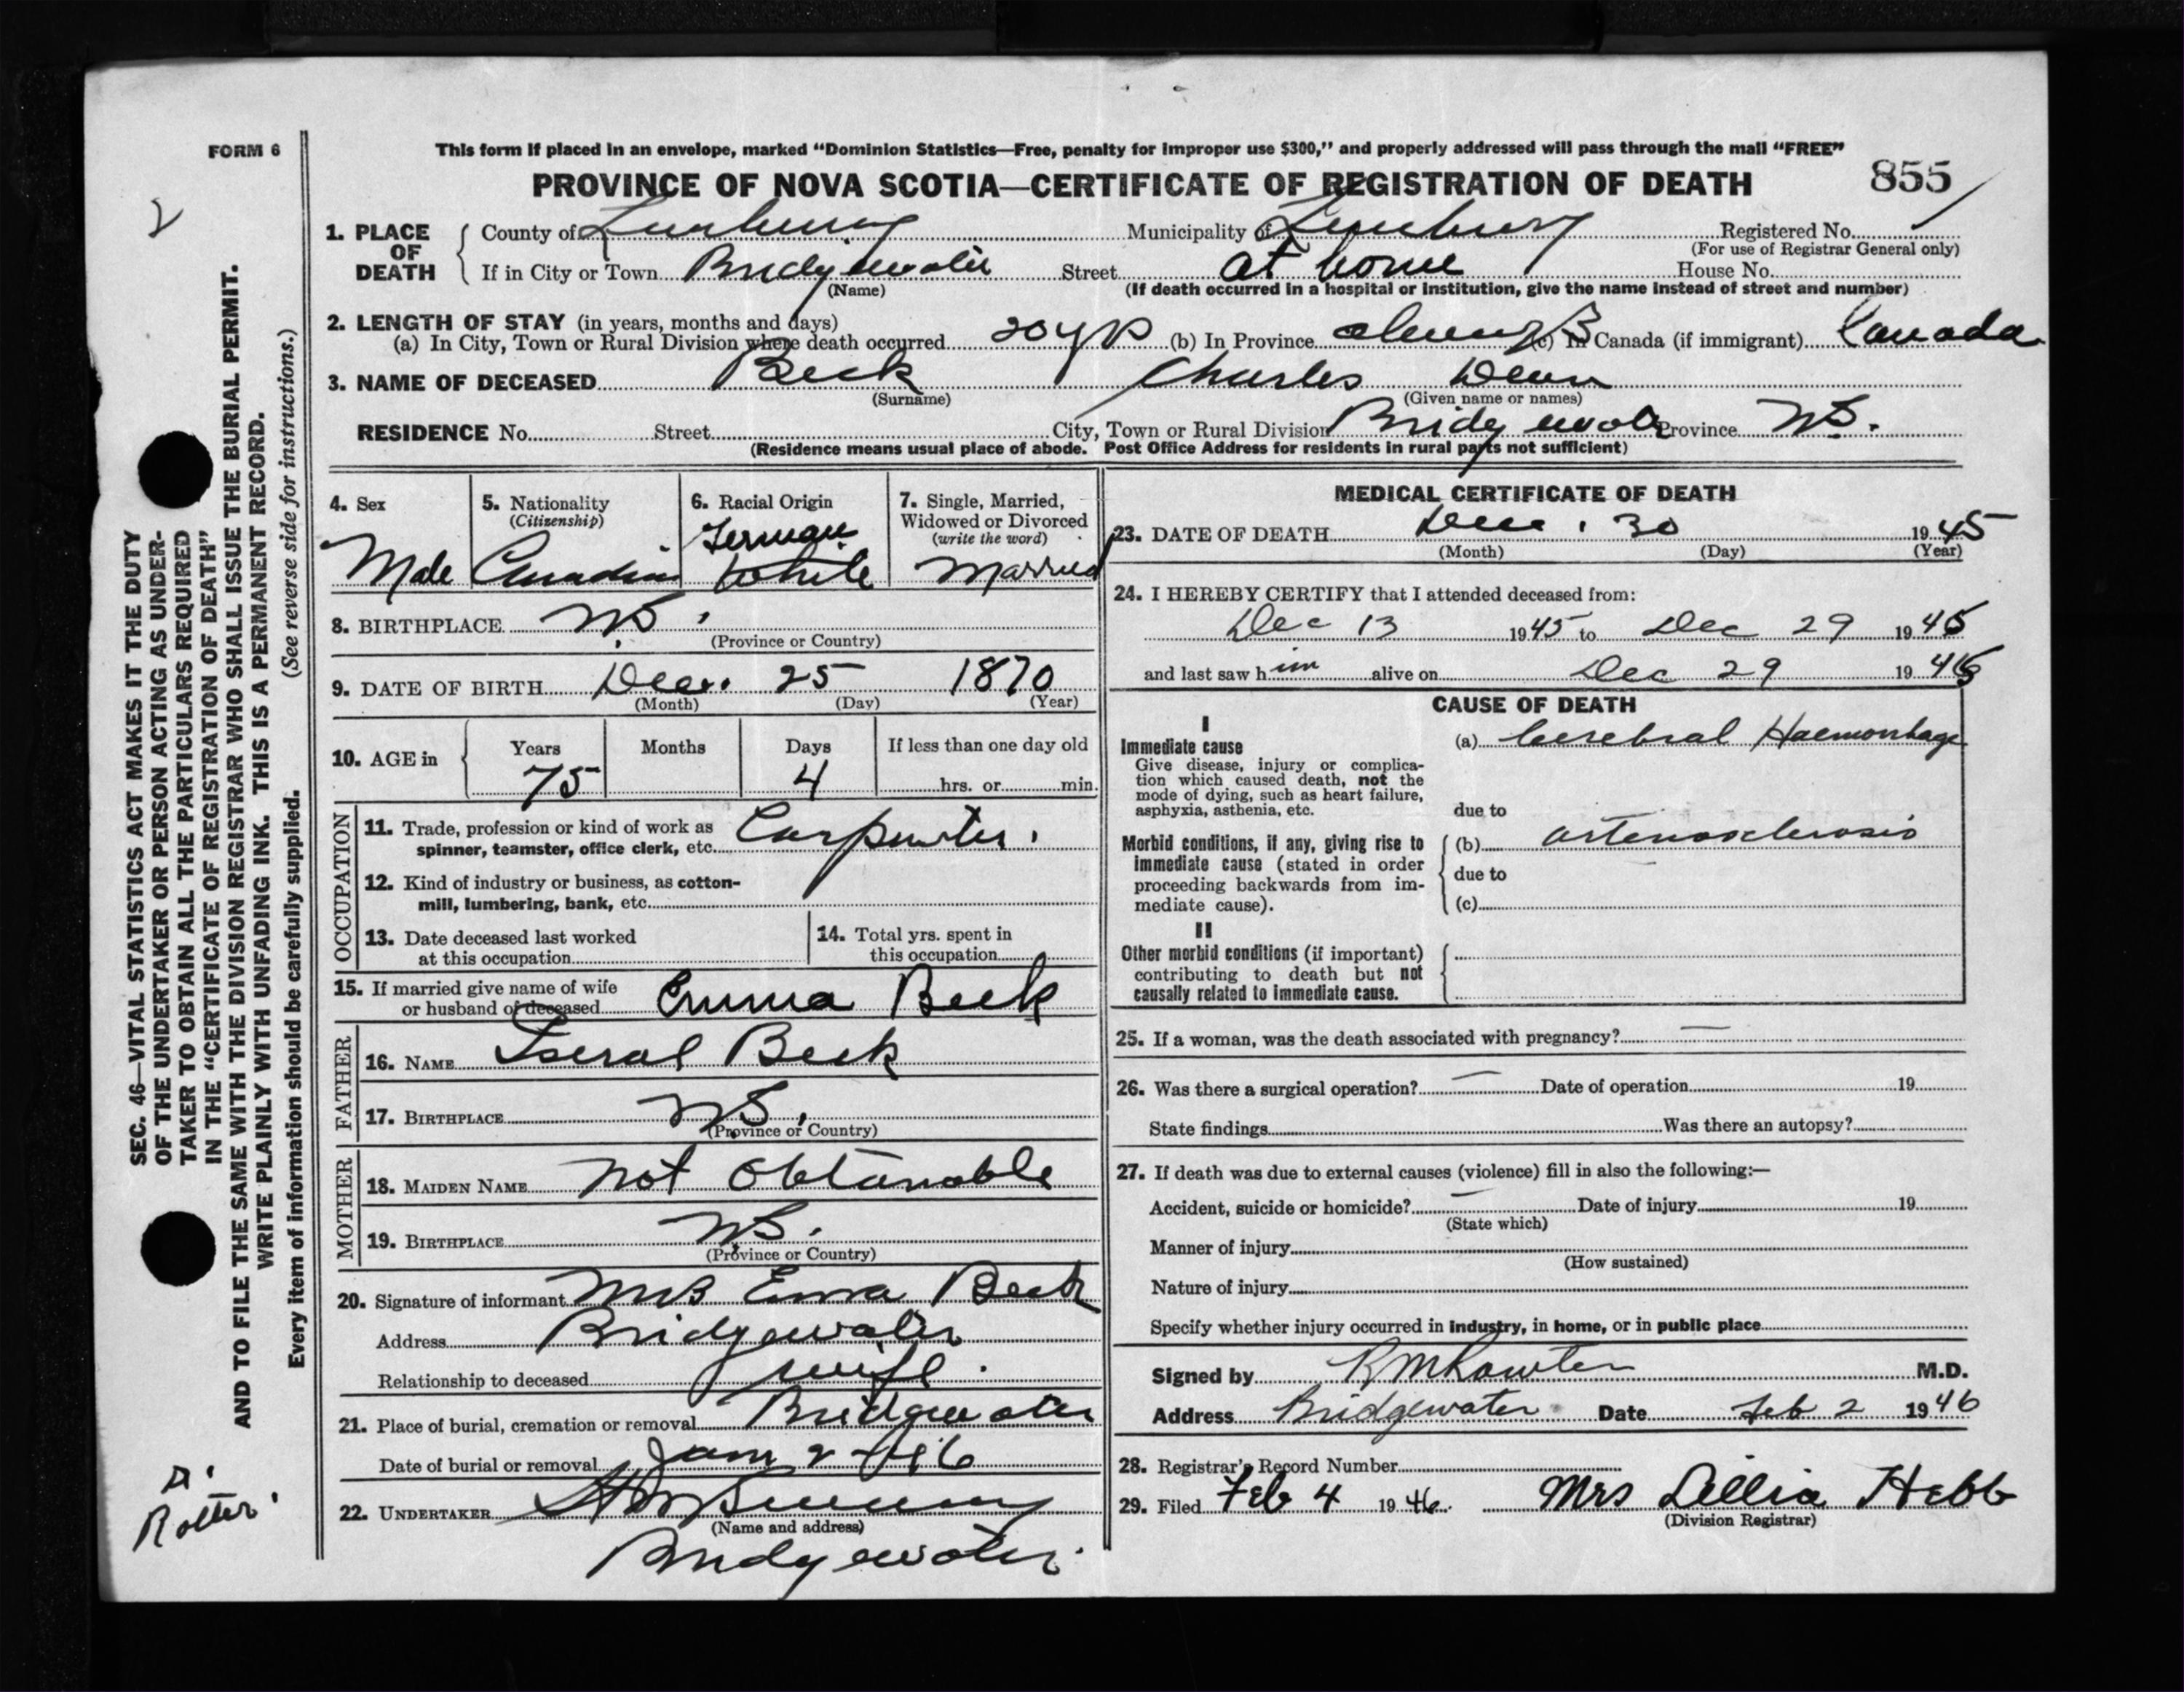 FORM 6
2
This form if placed in an envelope, marked “Dominion Statistics—Free, penalty for improper use $300,” and properly addressed will pass through the mail “FREE”
PROVINCE OF NOVA SCOTIA—CERTIFICATE OF REGISTRATION OF DEATH 855
1. PLACE OF DEATH County of Lunenburg Municipality of Lunenburg Registered No.
(For use of Registrar General only)
If in City or Town Bridgewater Street at home House No.
(Name) (If death occurred in a hospital or institution, give the name instead of street and number)
2. LENGTH OF STAY (in years, months and days)
(a) In City, Town or Rural Division where death occurred 20 yrs (b) In Province always (c) In Canada (if immigrant) Canada
3. NAME OF DECEASED Beck Charles Dean
(Surname) (Given name or names)
RESIDENCE No. Street City, Town or Rural Division Bridgewater Province NS.
(Residence means usual place of abode. Post Office Address for residents in rural parts not sufficient)
4. Sex 5. Nationality (Citizenship) 6. Racial Origin 7. Single, Married, Widowed or Divorced (write the word)
German
Male Canadian White Married
8. BIRTHPLACE NS.
(Province or Country)
9. DATE OF BIRTH Dec. 25 1870
(Month) (Day) (Year)
10. AGE in Years Months Days If less than one day old
75 4 hrs. or min.
OCCUPATION
11. Trade, profession or kind of work as spinner, teamster, office clerk, etc. Carpenter.
12. Kind of industry or business, as cotton-mill, lumbering, bank, etc.
13. Date deceased last worked at this occupation
14. Total yrs. spent in this occupation
15. If married give name of wife or husband of deceased Emma Beck
FATHER
16. NAME Iseral Beck
17. BIRTHPLACE NS.
(Province or Country)
MOTHER
18. MAIDEN NAME Not Obtanable
19. BIRTHPLACE NS.
(Province or Country)
20. Signature of informant Mrs Emma Beck
Address Bridgewater
Relationship to deceased wife.
21. Place of burial, cremation or removal Bridgewater
Date of burial or removal Jan 2 46
22. UNDERTAKER
(Name and address)
Bridgewater.
MEDICAL CERTIFICATE OF DEATH
23. DATE OF DEATH Dec. 30 1945
(Month) (Day) (Year)
24. I HEREBY CERTIFY that I attended deceased from:
Dec 13 1945 to Dec 29 1945
and last saw him alive on Dec 29 1945
CAUSE OF DEATH
I
Immediate cause (a) Cerebral Haemorrhage
Give disease, injury or complica-
tion which caused death, not the
mode of dying, such as heart failure,
asphyxia, asthenia, etc. due to
Morbid conditions, if any, giving rise to (b) arteriosclerosis
immediate cause (stated in order
proceeding backwards from im- due to
mediate cause). (c)
II
Other morbid conditions (if important)
contributing to death but not
causally related to immediate cause.
25. If a woman, was the death associated with pregnancy? —
26. Was there a surgical operation? — Date of operation 19
State findings Was there an autopsy?
27. If death was due to external causes (violence) fill in also the following:—
Accident, suicide or homicide? — Date of injury 19
(State which)
Manner of injury
(How sustained)
Nature of injury
Specify whether injury occurred in industry, in home, or in public place
Signed by M.D.
Address Bridgewater Date Feb 2 1946
28. Registrar's Record Number
29. Filed Feb 4 1946. Mrs Lillia Hebb
(Division Registrar)
SEC. 46—VITAL STATISTICS ACT MAKES IT THE DUTY
OF THE UNDERTAKER OR PERSON ACTING AS UNDER-
TAKER TO OBTAIN ALL THE PARTICULARS REQUIRED
IN THE “CERTIFICATE OF REGISTRATION OF DEATH”
AND TO FILE THE SAME WITH THE DIVISION REGISTRAR WHO SHALL ISSUE THE BURIAL PERMIT.
WRITE PLAINLY WITH UNFADING INK. THIS IS A PERMANENT RECORD.
Every item of information should be carefully supplied. (See reverse side for instructions.)